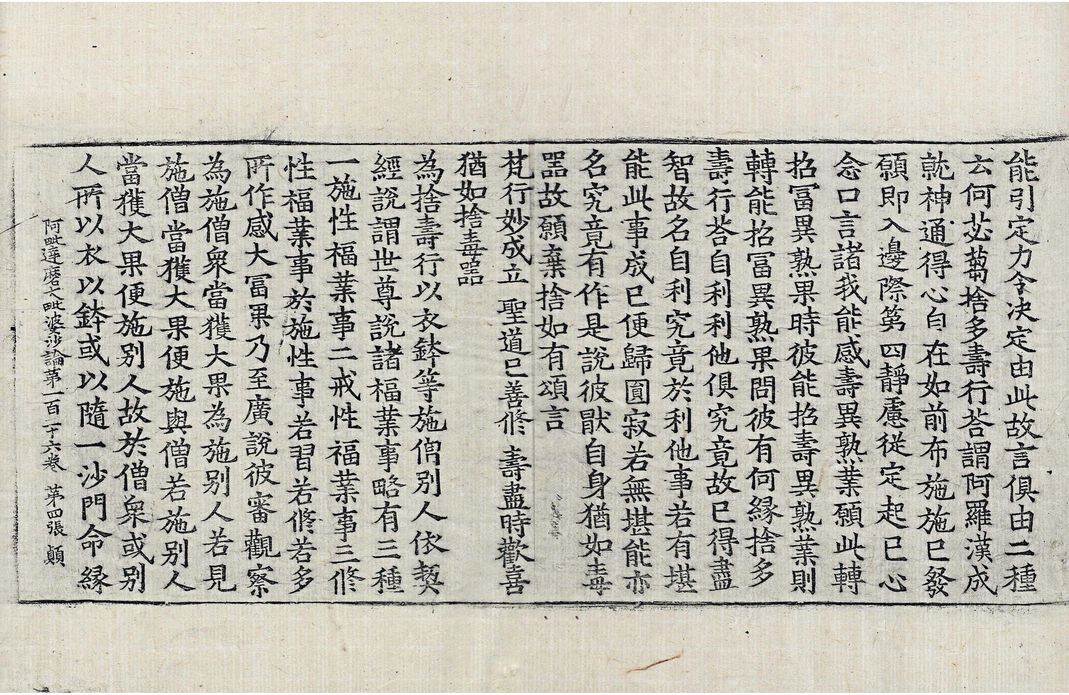 能引定力令決定由此故言俱由二種
云何苾蒭捨多壽行荅謂阿羅漢成
就神通得心自在如前布施施已發
願即入邊際第四靜慮從定起已心
念口言諸我能感壽異熟業願此轉
招冨異熟果時彼能招壽異熟業則
轉能招冨異熟果問彼有何緣捨多
壽行荅自利利他俱究竟故已得盡
智故名自利究竟於利他事若有堪
能此事成已便歸圓寂若無堪能亦
名究竟有作是說彼猒自身猶如毒
噐故願棄捨如有頌言
梵行妙成立 聖道已善修 壽盡時歡喜
猶如捨毒噐
為捨壽行以衣鉢等施僧別人依契
經說謂世尊說諸福業事略有三種
一施性福業事二戒性福業事三修
性福業事於施性事若習若修若多
所作感大冨果乃至廣說彼審觀察
為施僧衆當獲大果為施別人若見
施僧當獲大果便施與僧若施別人
當獲大果便施別人故於僧衆或別
人所以衣以鉢或以隨一沙門命緣
阿毗達磨大毗婆沙論第一百二十六卷 第四張 顛